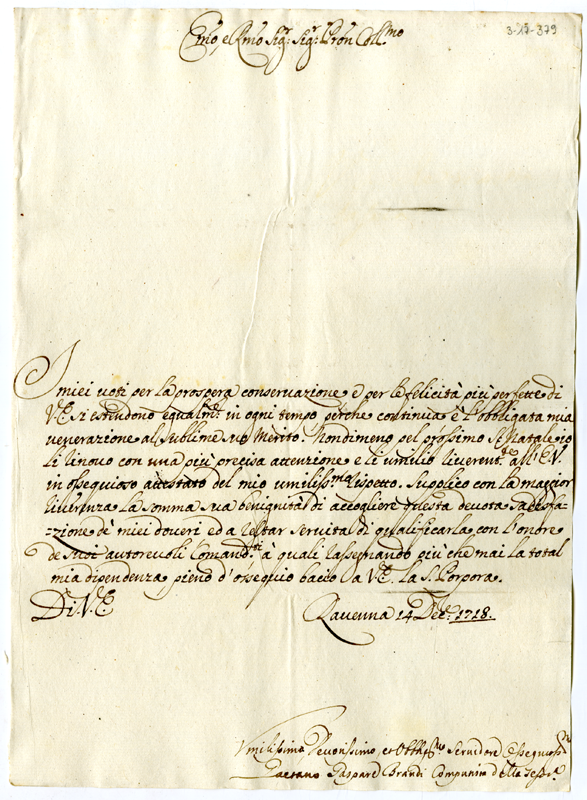 Emo, e Rmo Sigr: Sigr: Prōn Coll.mo
3-17-379
I miei voti per la prospera conservazione e per le felicità più perfette di
V.E. si estendono egualmte: in ogni tempo perche continua è l'obbligata mia
venerazione al sublime suo Merito. Nondimeno pel prossimo S. Natale io
li rinovo con una più precisa attenzione e li umilio riverentte: all'E.V.
in ossequioso attestato del mio umilissmo rispetto. Supplico con la maggior
riverenza la somma sua benignità di accogliere questa devota sodisfa-
-zione de miei doveri ed a restar servita di qualificarla con l'onore
de suoi autorevoli Comandti: a quali rassegnando più che mai la total
mia dipendenza pieno d'ossequio bacio a V.E. la S. Porpora.
Di V.E.
Ravenna 14 Dec: 1718.
Umilissimo, Devotissimo, et Obbligmo Servidore Ossequioss
Gaetano Gaspare Brandi